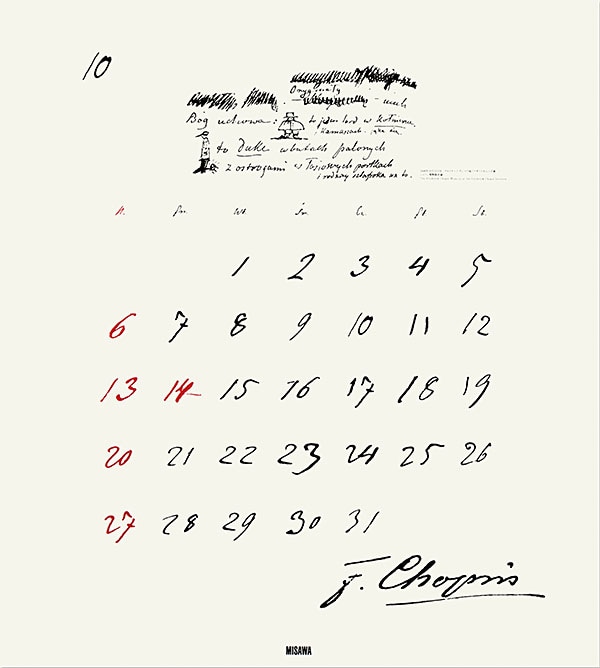 10
Oryginały
Bóg uchowa: to jem lord w
to Dukle w butach palonych
z ostrogami w portkach
N. Pn. Wt. Śr. C. Pt. So.
1 2 3 4 5
6 7 8 9 10 11 12
13 14 15 16 17 18 19
20 21 22 23 24 25 26
27 28 29 30 31
F. Chopin
MISAWA